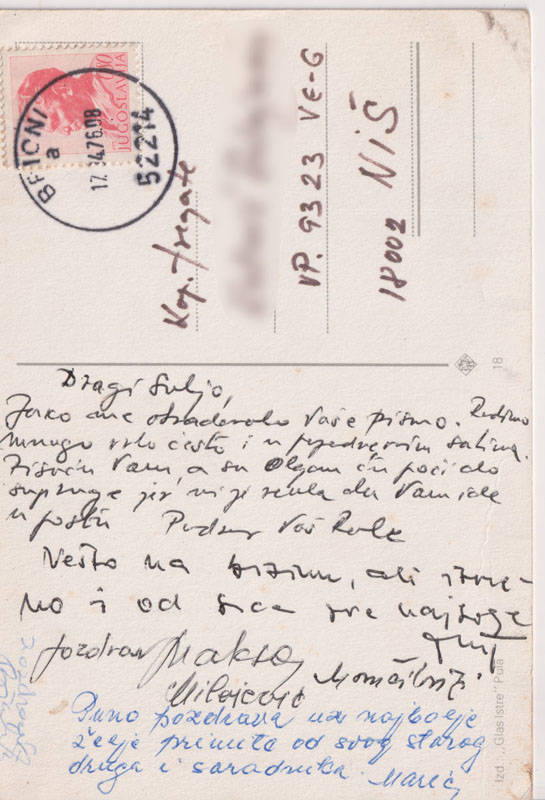 JUGOSLAVIJA
BRIONI
a
17.04.76.08
52214
Kap. fregate
VP. 9323 VE-G
18002 NIŠ
18
Dragi Suljo,
Jako me obradovalo Vaše pismo. Radimo
mnogo vrlo često i u popodnevnim satima.
Vam, a sa Olgom ću poći do
supruge jer mi je rekla da Vam ide
u poštu Pozdrav Vaš
Nešto na brzinu, ali iskre
no i od srca sve najbolje
pozdrav Maksa
Milojević
Puno pozdrava uz najbolje
želje primite od svog starog
druga i saradnika. Marić
Izd. „Glas Istre" Pula